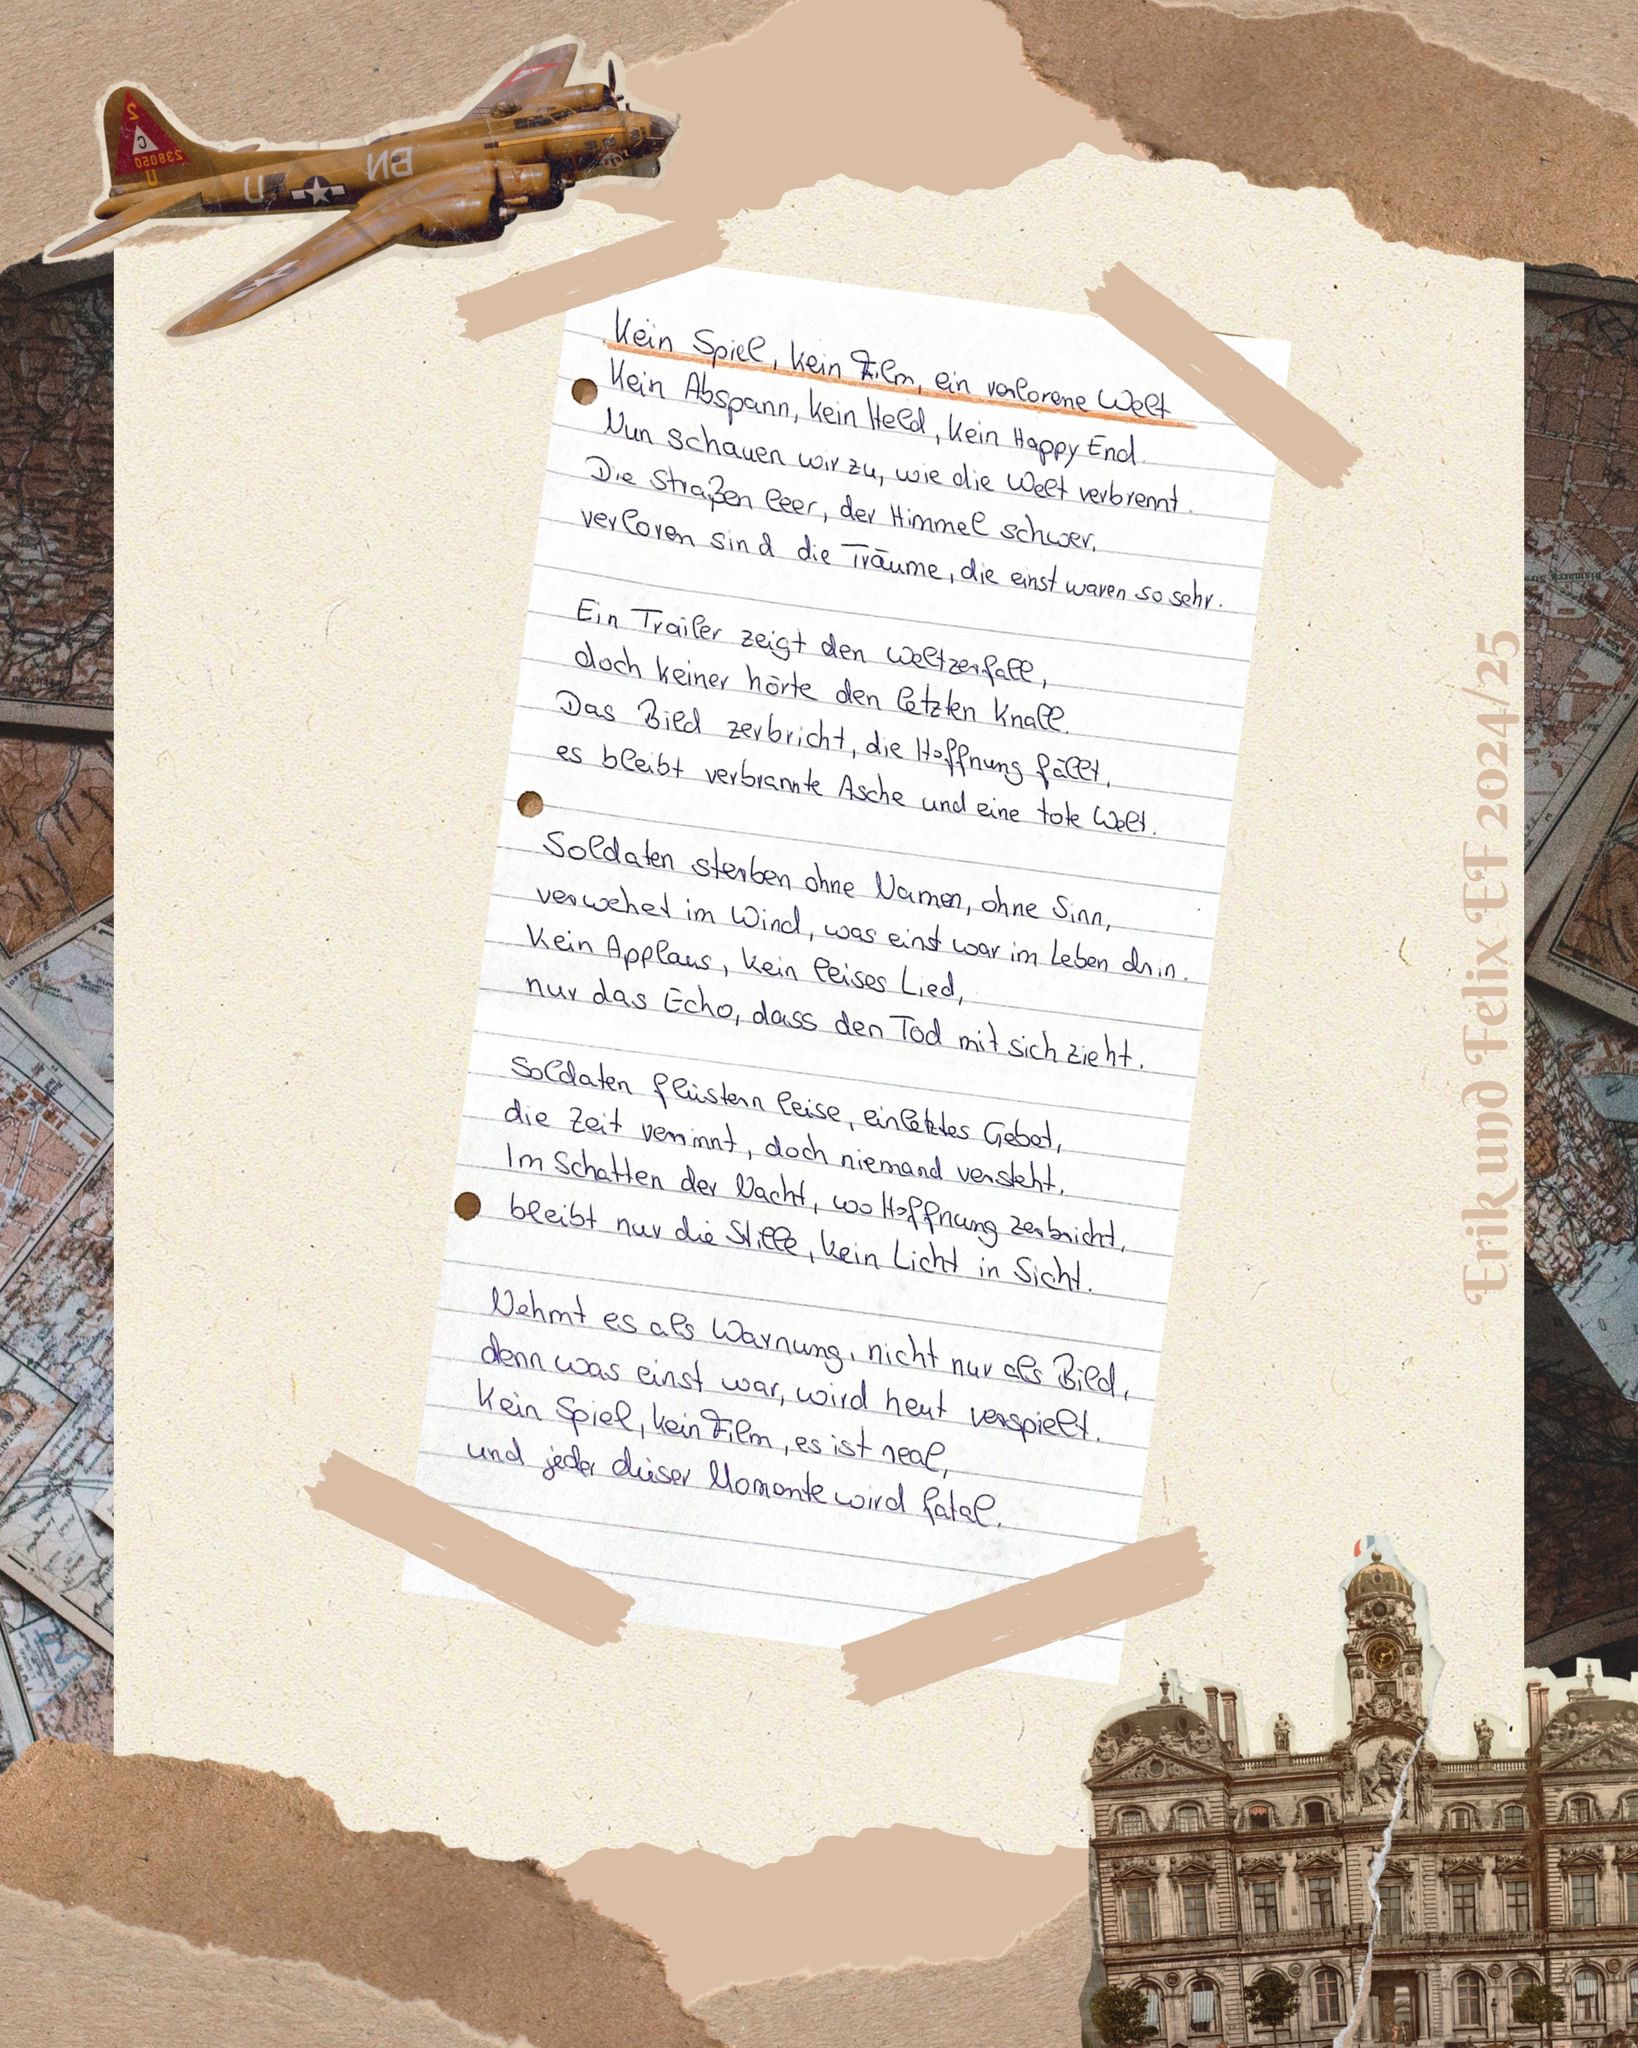 Kein Spiel, kein Film, ein verlorene Welt
Kein Abspann, kein Held, kein Happy End
Nun schauen wir zu, wie die Welt verbrennt.
Die Straßen leer, der Himmel schwer,
verloren sind die Träume, die einst waren so sehr.
Ein Trailer zeigt den Weltzerfall,
doch keiner hörte den letzten Knall.
Das Bild zerbricht, die Hoffnung fällt,
es bleibt verbrannte Asche und eine tote Welt.
Soldaten sterben ohne Namen, ohne Sinn,
verwehet im Wind, was einst war im Leben drin.
Kein Applaus, kein leises Lied,
nur das Echo, dass den Tod mit sich zieht.
Soldaten flüstern leise, ein letztes Gebet,
die Zeit verrinnt, doch niemand versteht,
Im Schatten der Nacht, wo Hoffnung zerbricht,
bleibt nur die Stille, kein Licht in Sicht.
Nehmt es als Warnung, nicht nur als Bild,
denn was einst war, wird heut verspielt.
Kein Spiel, kein Film, es ist real,
und jeder dieser Momente wird fatal.
Erik und Felix EF 2024/25
2
C
238060
U
U
BN